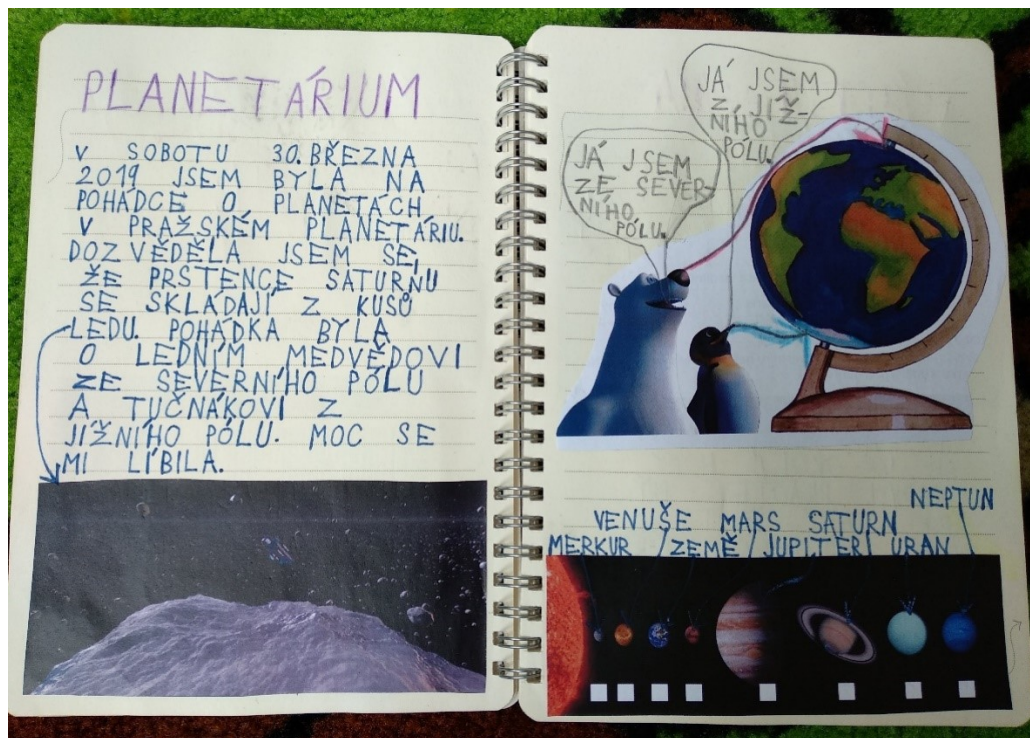 PLANETÁRIUM
V SOBOTU 30. BŘEZNA
2019 JSEM BYLA NA
POHÁDCE O PLANETÁCH
V PRAŽSKÉM PLANETÁRIU.
DOZVĚDĚLA JSEM SE,
ŽE PRSTENCE SATURNU
SE SKLÁDAJÍ Z KUSŮ
LEDU. POHÁDKA BYLA
O LEDNÍM MEDVĚDOVI
ZE SEVERNÍHO PÓLU
A TUČŇÁKOVI Z
JIŽNÍHO PÓLU. MOC SE
MI LÍBILA.
JÁ JSEM
Z JIŽ-
NÍHO
PÓLU.
JÁ JSEM
ZE SEVER-
NÍHO
PÓLU.
NEPTUN
VENUŠE MARS SATURN
MERKUR ZEMĚ JUPITER URAN